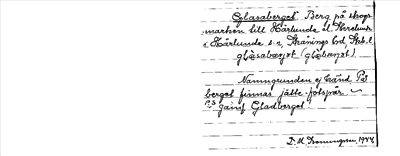 "Glasaberget" Berg på skogs-
marken till Härlunda
i Härlunda s:n, Skånings hd, Skb.l.
glasabærjet (glasbærjet)
Namngrunden ej känd. På
berget finnas jätte-fotspår.
Jämf Gladberget.
1944.